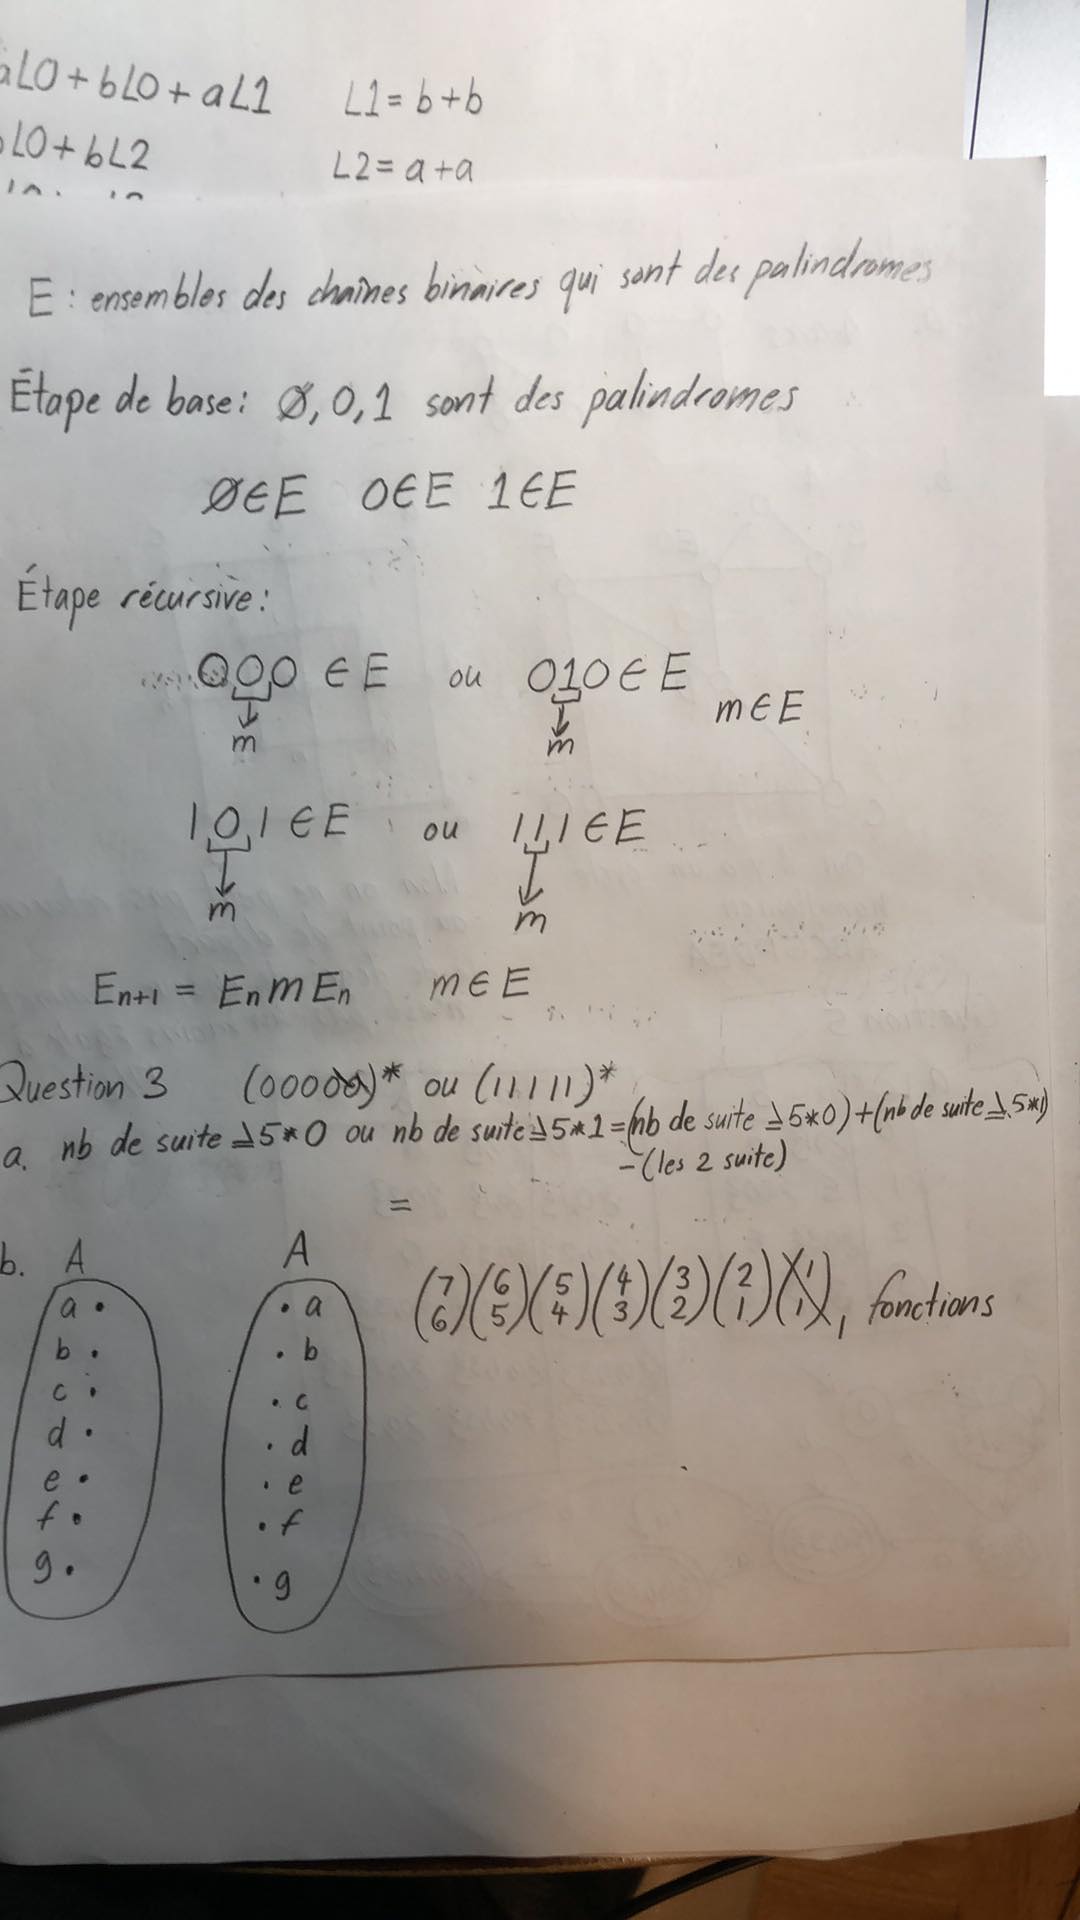 aL0 + bL0 + aL1 L1 = b + b
L0 + bL2 L2 = a + a
E : ensembles des chaînes binaires qui sont des palindromes
Étape de base : Ø, 0, 1 sont des palindromes
Ø ∈ E 0 ∈ E 1 ∈ E
Étape récursive :
000 ∈ E ou 010 ∈ E
m m m ∈ E
101 ∈ E ou 111 ∈ E
m m
En+1 = En m En m ∈ E
Question 3 (00000)* ou (11111)*
a. nb de suite ≥ 5*0 ou nb de suite ≥ 5*1 = (nb de suite ≥ 5*0) + (nb de suite ≥ 5*1)
- (les 2 suite)
=
b. A A
(7 6)(6 5)(5 4)(4 3)(3 2)(2 1)(1 1), fonctions
a • • a
b • • b
c • • c
d • • d
e • • e
f • • f
g • • g